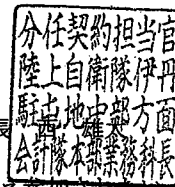 分任契約担当官
陸上自衛隊伊丹
駐屯地中部方面
会計隊本部業務科長
長